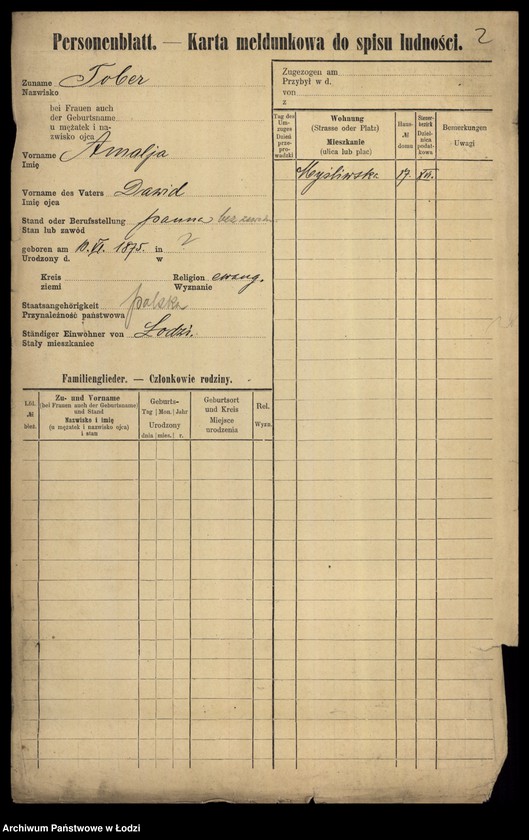 Personenblatt. — Karta meldunkowa do spisu ludności. 2
Zuname Tober
Nazwisko
bei Frauen auch
der Geburtsname
u mężatek i na-
zwisko ojca
Vorname Amalja
Imię
Vorname des Vaters Dawid
Imię ojca
Stand oder Berufsstellung panna bez zawodu
Stan lub zawód
geboren am 10. VI. 1875. in ?
Urodzony d. w
Kreis Religion ewang.
ziemi Wyznanie
Staatsangehörigkeit polska
Przynależność państwowa
Ständiger Einwohner von Łodzi.
Stały mieszkaniec
Zugezogen am
Przybył w d.
von
z
Tag des Um-zuges Dzień prze-pro-wadzki
Wohnung (Strasse oder Platz) Mieszkanie (ulica lub plac)
Haus- № domu
Steuer-bezirk Dziel-nica podat-kowa
Bemerkungen Uwagi
Myśliwska 17. XII.
Familienglieder. — Członkowie rodziny.
Lfd. № bież.
Zu- und Vorname (bei Frauen auch der Geburtsname) und Stand Nazwisko i imię (u mężatek i nazwisko ojca) i stan
Geburts- Tag Mon. Jahr Urodzony dnia mies. r.
Geburtsort und Kreis Miejsce urodzenia
Rel. Wyzn.
Archiwum Państwowe w Łodzi